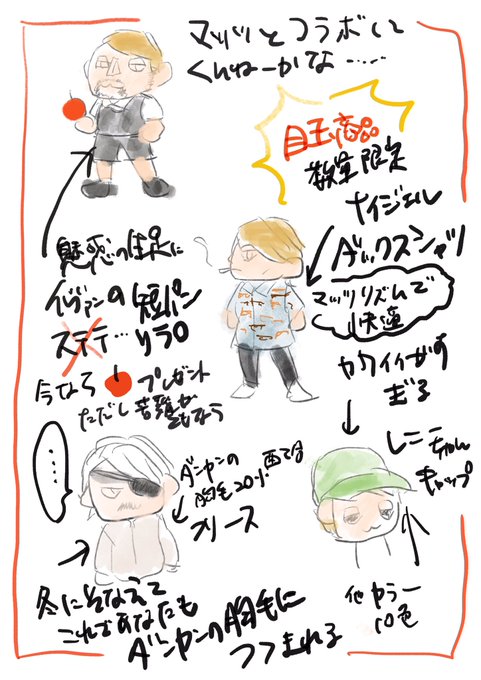 マッツとコラボして
くんねーかな……
目玉商品
数量限定
ナイジェル
ダックスシャツ
マッツリズムで
快適
カワイイがす
ぎる
レニーちゃん
キャップ
他カラー
10色
魅惑の生足に
イヴァンの短パン
ステテ…
今なら
プレゼント
ただし苦難が
ともなう
……
ダンカンの
胸毛20%配合
フリース
冬にそなえて
これであなたも
ダンカンの胸毛に
つつまれる